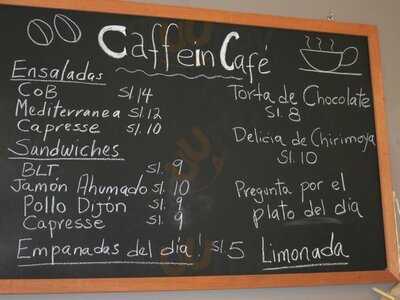 CaffeinCafé
Ensaladas
COB S/.14
Mediterranea S/.12
Capresse S/.10
Sandwiches
BLT S/. 9
Jamón Ahumado S/. 10
Pollo Dijón S/. 9
Capresse S/. 9
Empanadas del día! S/. 5
Torta de Chocolate
S/. 8
Delicia de Chirimoya
S/. 10
Pregunta por el
plato del día
Limonada